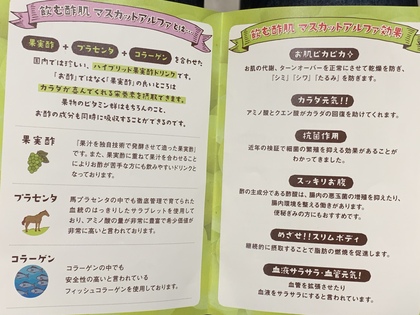 飲む酢肌 マスカットアルファとは…
果実酢 + プラセンタ + コラーゲン を合わせた
国内では珍しい、ハイブリット果実酢ドリンクです。
「お酢」ではなく「果実酢」の良いところは
カラダが喜んでくれる栄養素を摂取できます。
果物のビタミン群はもちろんのこと、
お酢の成分も同時に吸収することができるのです。
果実酢
「果汁を独自技術で発酵させて造った果実酢」
です。また、果実酢に重ねて果汁を合わせること
によりお酢が苦手な方にも飲みやすいドリンクと
なっております。
プラセンタ
馬プラセンタの中でも徹底管理で育てられた
血統のはっきりしたサラブレットを使用して
おり、アミノ酸の量が非常に豊富で希少価値が
非常に高いと言われております。
コラーゲン
コラーゲンの中でも
安全性の高いと言われている
フィッシュコラーゲンを使用しております。
飲む酢肌 マスカットアルファ効果
お肌ピカピカ
お肌の代謝、ターンオーバーを正常にさせて乾燥を防ぎ、
「シミ」「シワ」「たるみ」を防ぎます。
カラダ元気!!
アミノ酸とクエン酸がカラダの回復を助けてくれます。
抗菌作用
近年の検証で細菌の繁殖を抑える効果があることが
わかってきました。
スッキリお腹
酢の主成分である酢酸は、腸内の悪玉菌の増殖を抑えたり、
腸内環境を整える働きがあります。
便秘みの方にもおすすめです。
めざせ!!スリムボディ
継続的に摂取することで脂肪の燃焼を促進します。
血液サラサラ・血管元気!
血管を拡張させたり
血液をサラサラにすると言われています。